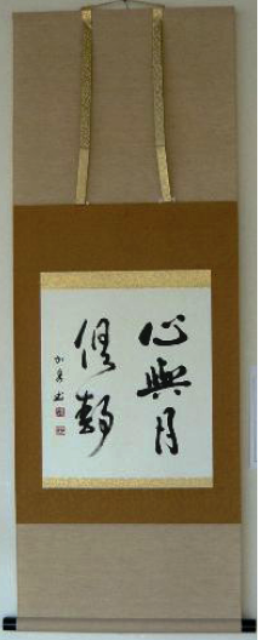 心與月
俱靜